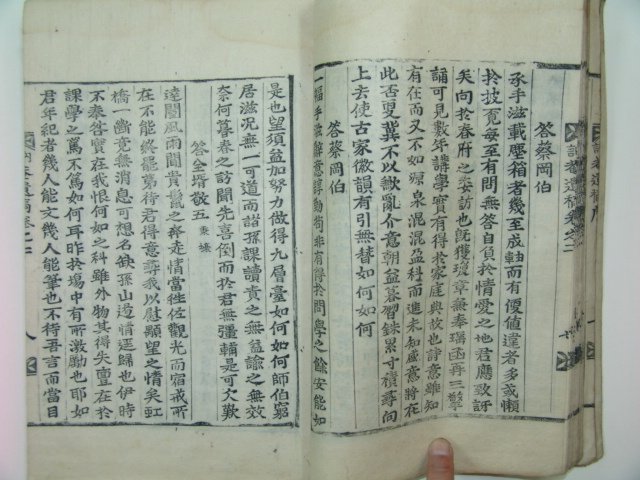 答蔡岡伯
承手滋載塵箱者幾至成軸而有便値違者多或懶
於披寬每至有問無答自負於情愛之地君應致訝
矣向於春府之委訪也旣獲瓊章無奉瑤函再三擎
誦可見數年講學實有得於家庭典故也詩意雖知
有在而又不如源泉混混盈科而進未知盧意將在
此否更冀不以歉亂介意朝益暮習銖累寸積尋向
上去使古家徽韻有引無替如何如何
答蔡岡伯
一幅手滋辭意諄勤苟非有得於問學之餘安能如
是也望須益加努力做得九層臺如何如何師伯窮
居滋况無一可道而諧孫課讀責之無益諭之無效
奈何暮春之訪聞先喜倒而於君無彊輔是可欠歎
答金壻敬五
達閣風雨聞貴鬣之奔走情當往佐觀光而宿戒所
在不能終罷第待君得意弊我以慰顯望之情矣虹
橋一斷竟無消息可想名缺孫山遠情遅歸也伊時
不奉答實在我恨何如之科雖外物其得失亶在於
課學之篤不篤如何耳昨於塲中有所激勵也耶如
君年紀者幾人能文幾人能筆也不待吾言而當目